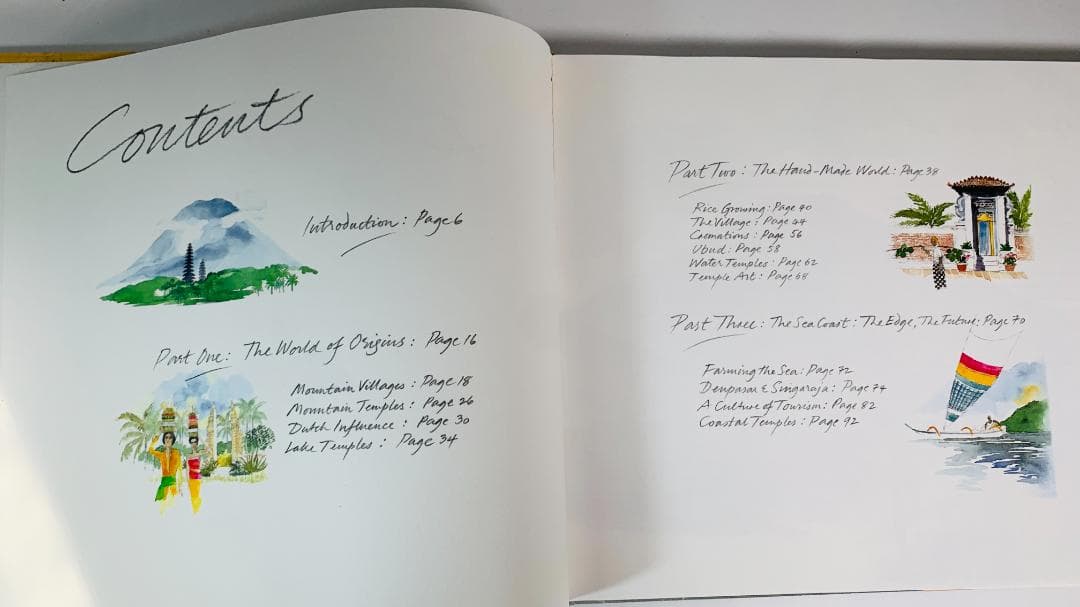 Contents
Introduction: Page 6
Part One: The World of Origins: Page 16
Mountain Villages: Page 18
Mountain Temples: Page 26
Dutch Influence: Page 30
Lake Temples: Page 34
Part Two: The Hand-Made World: Page 38
Rice Growing: Page 40
The Village: Page 44
Cremations: Page 56
Ubud: Page 58
Water Temples: Page 62
Temple Art: Page 68
Part Three: The Sea Coast: The Edge, The Future: Page 70
Farming the Sea: Page 72
Denpasar & Singaraja: Page 74
A Culture of Tourism: Page 82
Coastal Temples: Page 92